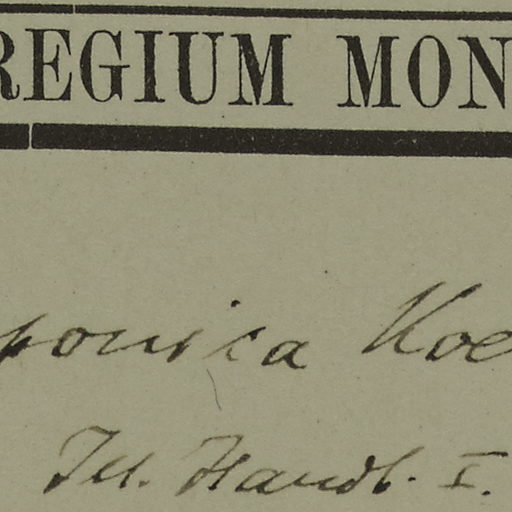 REGIUM MON
ponica Koe
Ill. Handb. I.